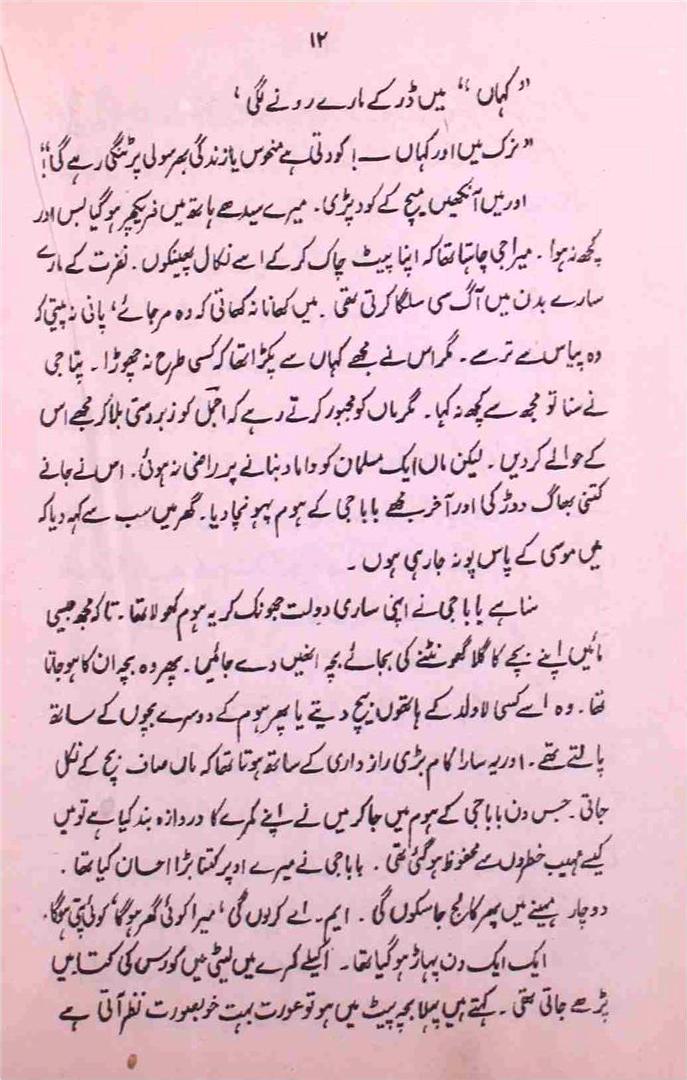 ۱۲
"کہاں" میں ڈر کے مارے رونے لگی،
"نرک میں اور کہاں — ! کودتی ہے منحوس یا زندگی بھر سولی پر ٹنگی رہے گا"!
اور میں آنکھیں میچ کے کود پڑی۔ میرے سیدھے ہاتھ میں فریکچر ہو گیا بس اور
کچھ نہ ہوا۔ میرا جی چاہتا تھا کہ اپنا پیٹ چاک کر کے اسے نکال پھینکوں۔ نفرت کے مارے
سارے بدن میں آگ سی سلگا کرتی تھی۔ میں کھانا نہ کھاتی کہ وہ مر جائے، پانی نہ پیتی کہ
وہ پیاس سے ترسے۔ مگر اس نے مجھے کہاں سے پکڑا تھا کہ کسی طرح نہ چھوڑا۔ پتا جی
نے سنا تو مجھ سے کچھ نہ کہا۔ مگر ماں کو مجبور کرتے رہے کہ اجمل کو زبردستی بلا کر مجھے اس
کے حوالے کر دیں۔ لیکن ماں ایک مسلمان کو داماد بنانے پر راضی نہ ہوئی۔ اس نے جانے
کتنی بھاگ دوڑ کی اور آخر مجھے بابا جی کے ہوم پہونچا دیا۔ گھر میں سب سے کہہ دیا کہ
میں موسی کے پاس پونہ جا رہی ہوں۔
سنا ہے بابا جی نے اپنی ساری دولت جھونک کر یہ ہوم کھولا تھا۔ تاکہ مجھ جیسی
مائیں اپنے بچے کا گلا گھونٹنے کی بجائے بچہ انھیں دے جائیں۔ پھر وہ بچہ ان کا ہو جاتا
تھا۔ وہ اسے کسی لاولد کے ہاتھوں بیچ دیتے یا پھر ہوم کے دوسرے بچوں کے ساتھ
پالتے تھے۔ اور یہ سارا کام بڑی رازداری کے ساتھ ہوتا تھا کہ ماں صاف بچ کے نکل
جاتی۔ جس دن بابا جی کے ہوم میں جا کر میں نے اپنے کمرے کا دروازہ بند کیا ہے تو میں
کیسے مہیب خطروں سے محفوظ ہو گئی تھی۔ بابا جی نے میرے اوپر کتنا بڑا احسان کیا تھا۔
دو چار مہینے میں پھر کالج جا سکوں گی۔ ایم۔ اے کروں گی، میرا کوئی گھر ہو گا، کوئی پتی ہوگا۔
ایک ایک دن پہاڑ ہو گیا تھا۔ اکیلے کمرے میں لیٹی میں کورس کی کتابیں
پڑھے جاتی تھی۔ کہتے ہیں پہلا بچہ پیٹ میں ہو تو عورت بہت خوبصورت نظر آتی ہے